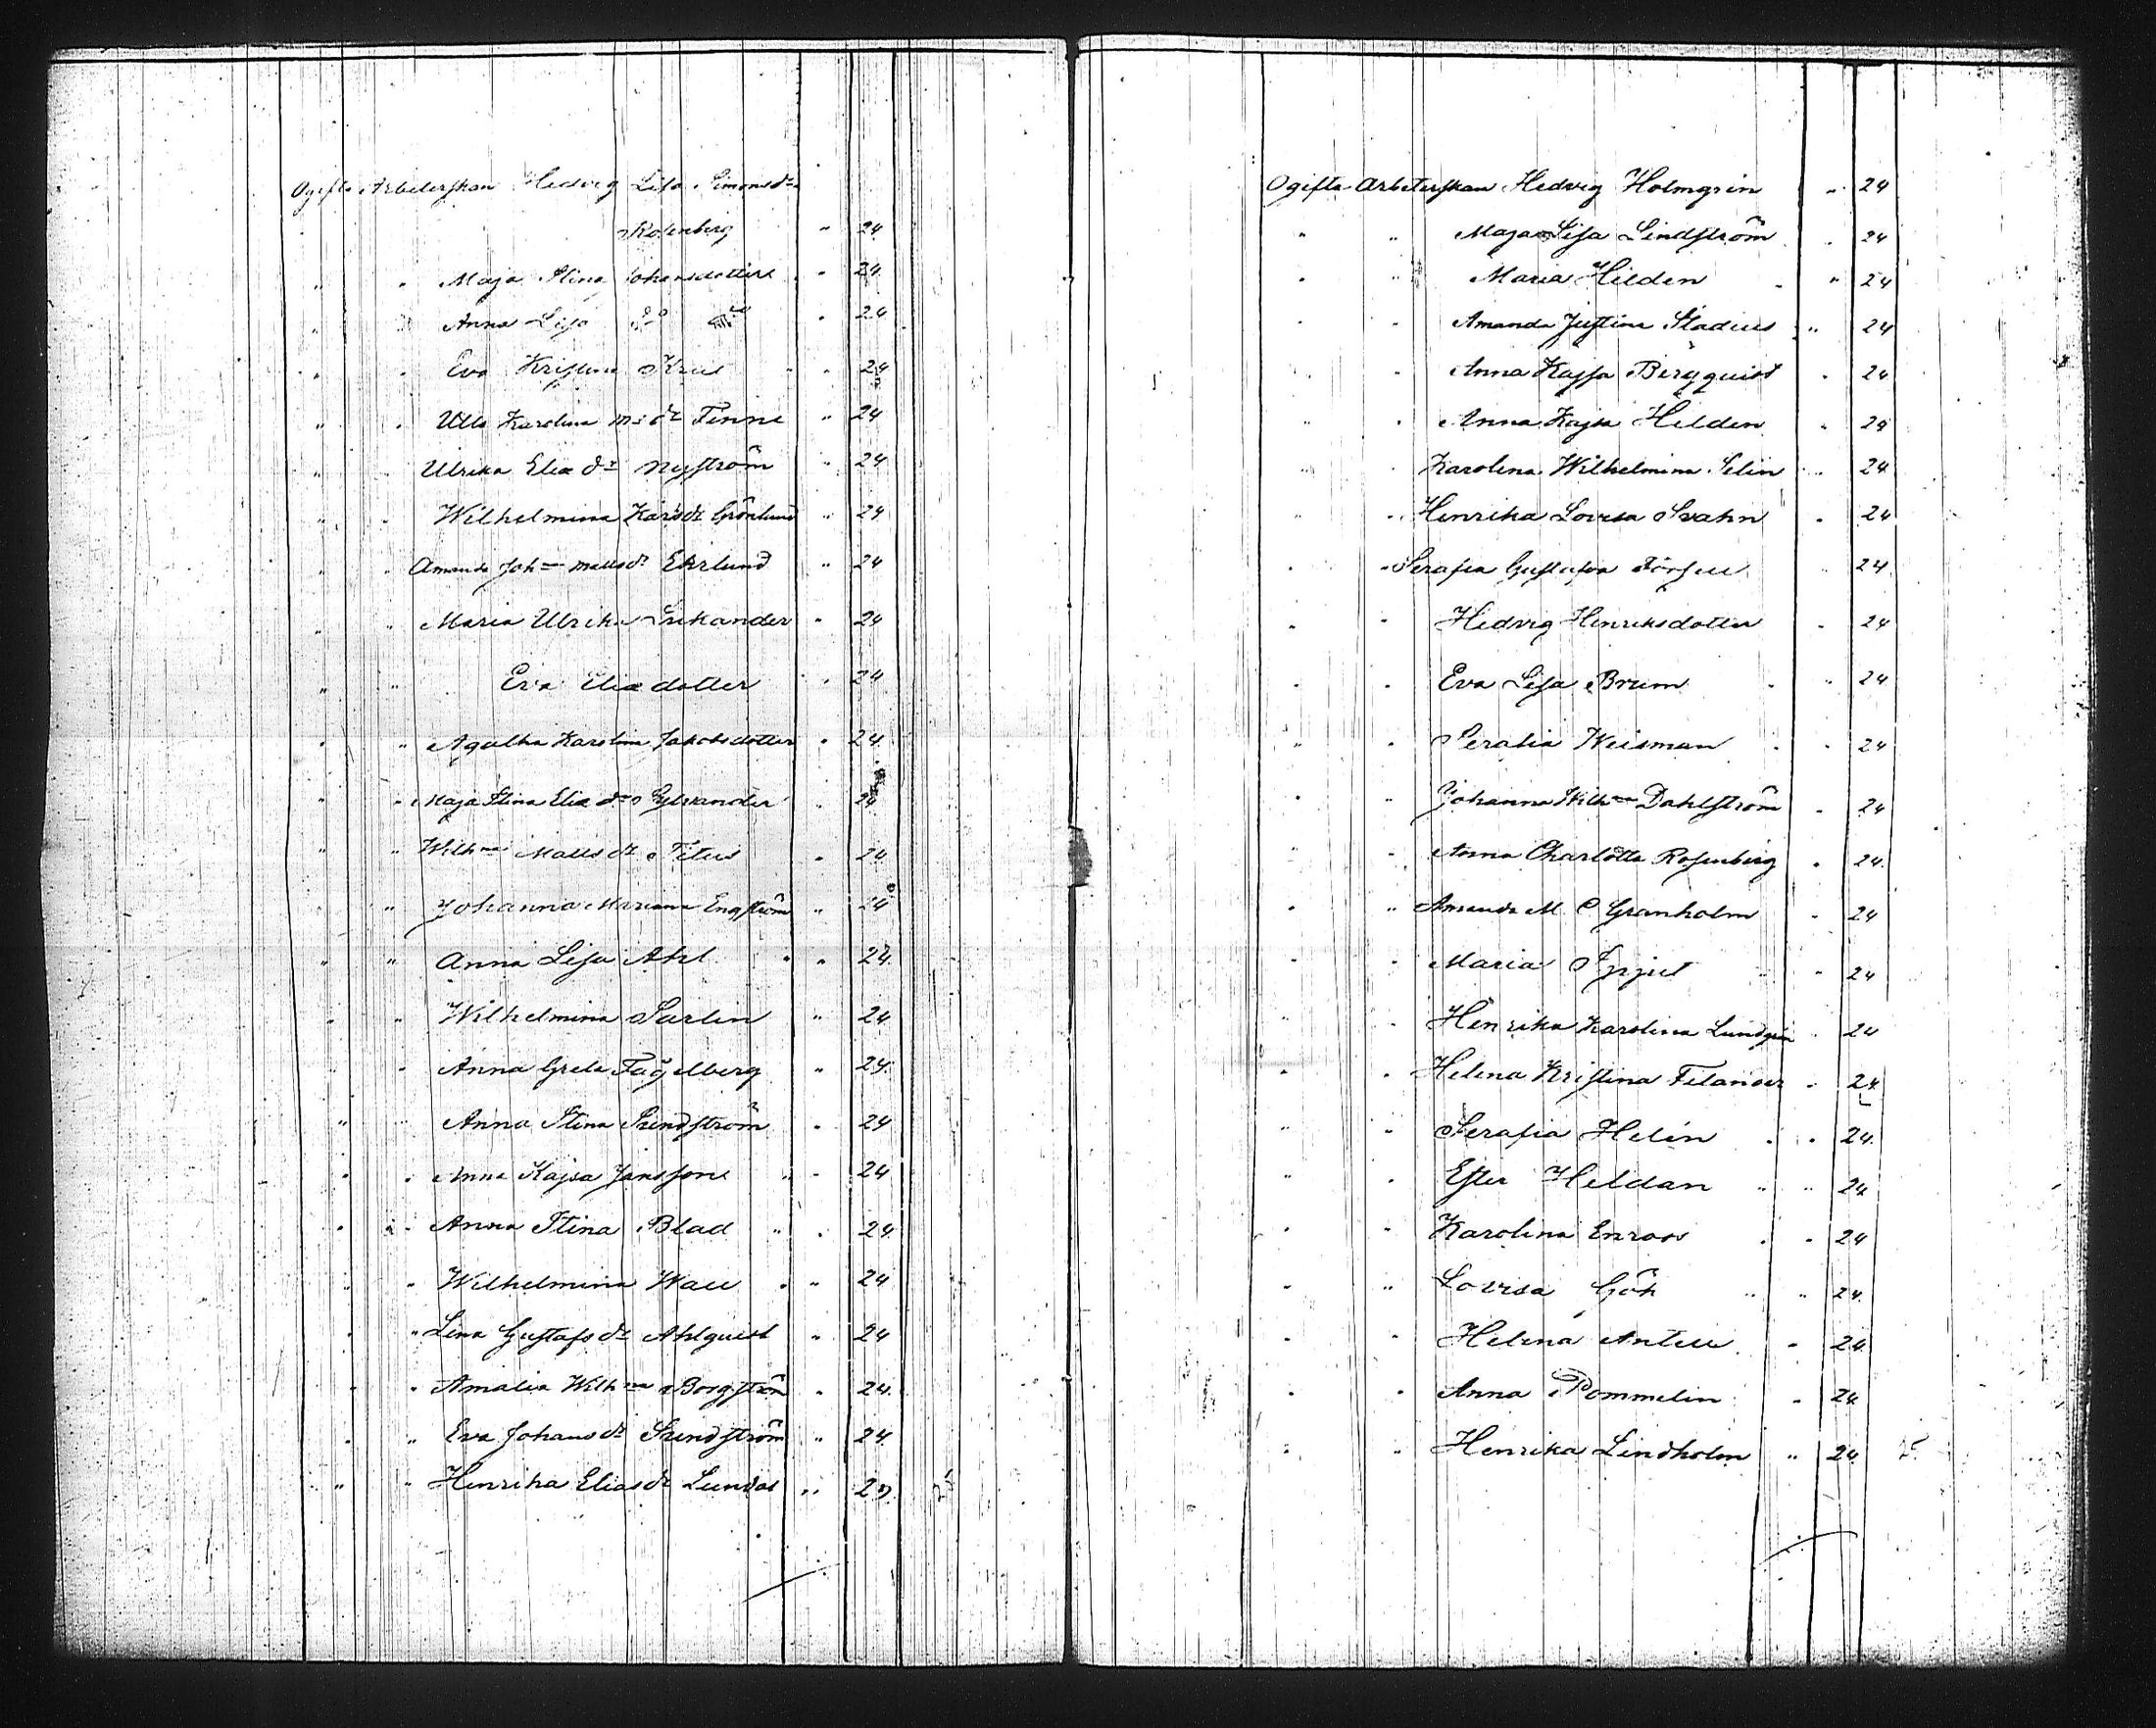 Ogifta Arbeterskan Hedvig Lisa Simonsdr
Rosenberg " 24
" " Maja Stina Johansdotter " 24
" " Anna Lisa do " 24
" " Eva Kristina " 24
" " Ulla Karolina M:s dr Finne " 24
" " Ulrika Eliæ dr Nyström " 24
" " Wilhelmina Karls dr Grönlund " 24
" " Amanda Joh:na Matts dr Ekrlund " 24
" " Maria Ulrika " 24
" " Eva Eliæ dotter " 24
" " Agatha Karolina Jakobsdotter " 24
" " Maja Stina Eliæ dr Sylvander " 24
" " Wilh:na Matts dr Titus " 24
" Johanna Mariana Engström " 24
" " Anna Lisa Ahl " " 24
" " Wilhelmina Sarlin " 24
" Anna Greta Fågelberg " 24
" " Anna Stina Lindström " 24
" " Anna Kajsa Jansson " " 24
" " Anna Stina Blad " " 24
" " Wilhelmina Wall " " 24
" " Lina Gustafs dr Ahlquist " 24
" " Amalia Wilh:na Borgström " 24
" " Eva Johans dr Lindström " 24
" " Henrika Elias dr Lundal " 24
Ogifta Arbeterskan Hedvig Holmgrin " 24
" " Maja Lisa Lindström " 24
" " Maria Hilden " " 24
" " Amanda Justina Stadius " 24
" " Anna Kajsa Bergquist " 24
" " Anna Kajsa Helden " 24
" " Karolina Wilhelmina Selin " 24
" " Henrika Lovisa Svahn " 24
" " Serafia Gustafva " 24
" " Hedvig Henriksdotter " 24
" " Eva Lisa Brum " " 24
" " Seralia Weisman " " 24
" " Johanna Wilh:na Dahlström " 24
" " Anna Charlotta Rosenberg " 24
" " Amanda M C Granholm " 24
" " Maria " " 24
" " Henrika Karolina Lundgrin " 24
" " Helena Kristina Filander " 24
" " Serafia Helin " " 24
" " Ester Heldan " " 24
" " Karolina Enroos " " 24
" " Lovisa Gök " " 24
" " Helena Antell " 24
" " Anna Pommelin " 24
" " Henrika Lindholm " 24